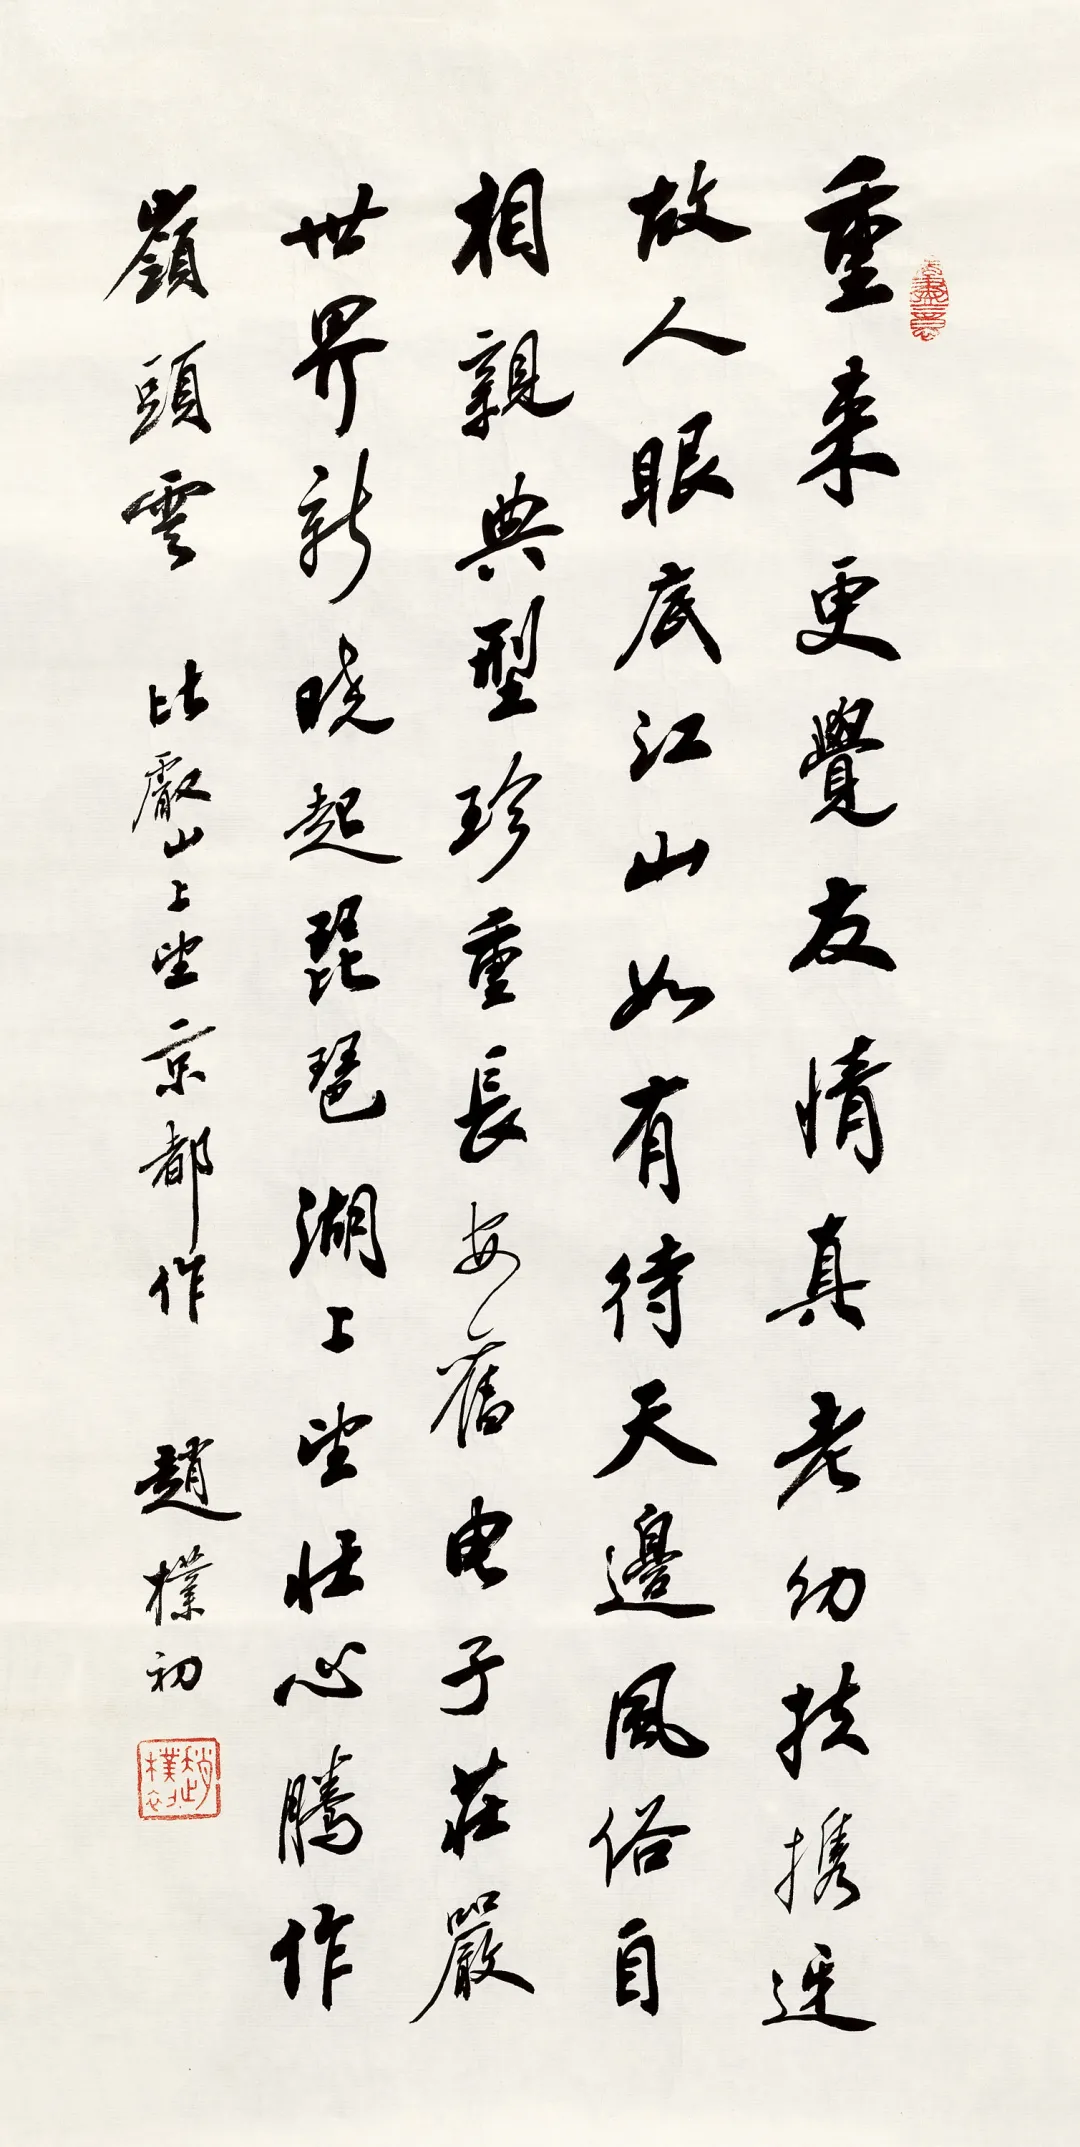 重来更覺友情真老幼扶携迓
故人眼底江山如有待天邊風俗自
相親典型珍重長安舊电子莊嚴
世界新晓起琵琶湖上望壮心騰作
嶺頭雲 比叡山上望京都作 趙樸初
趙樸初